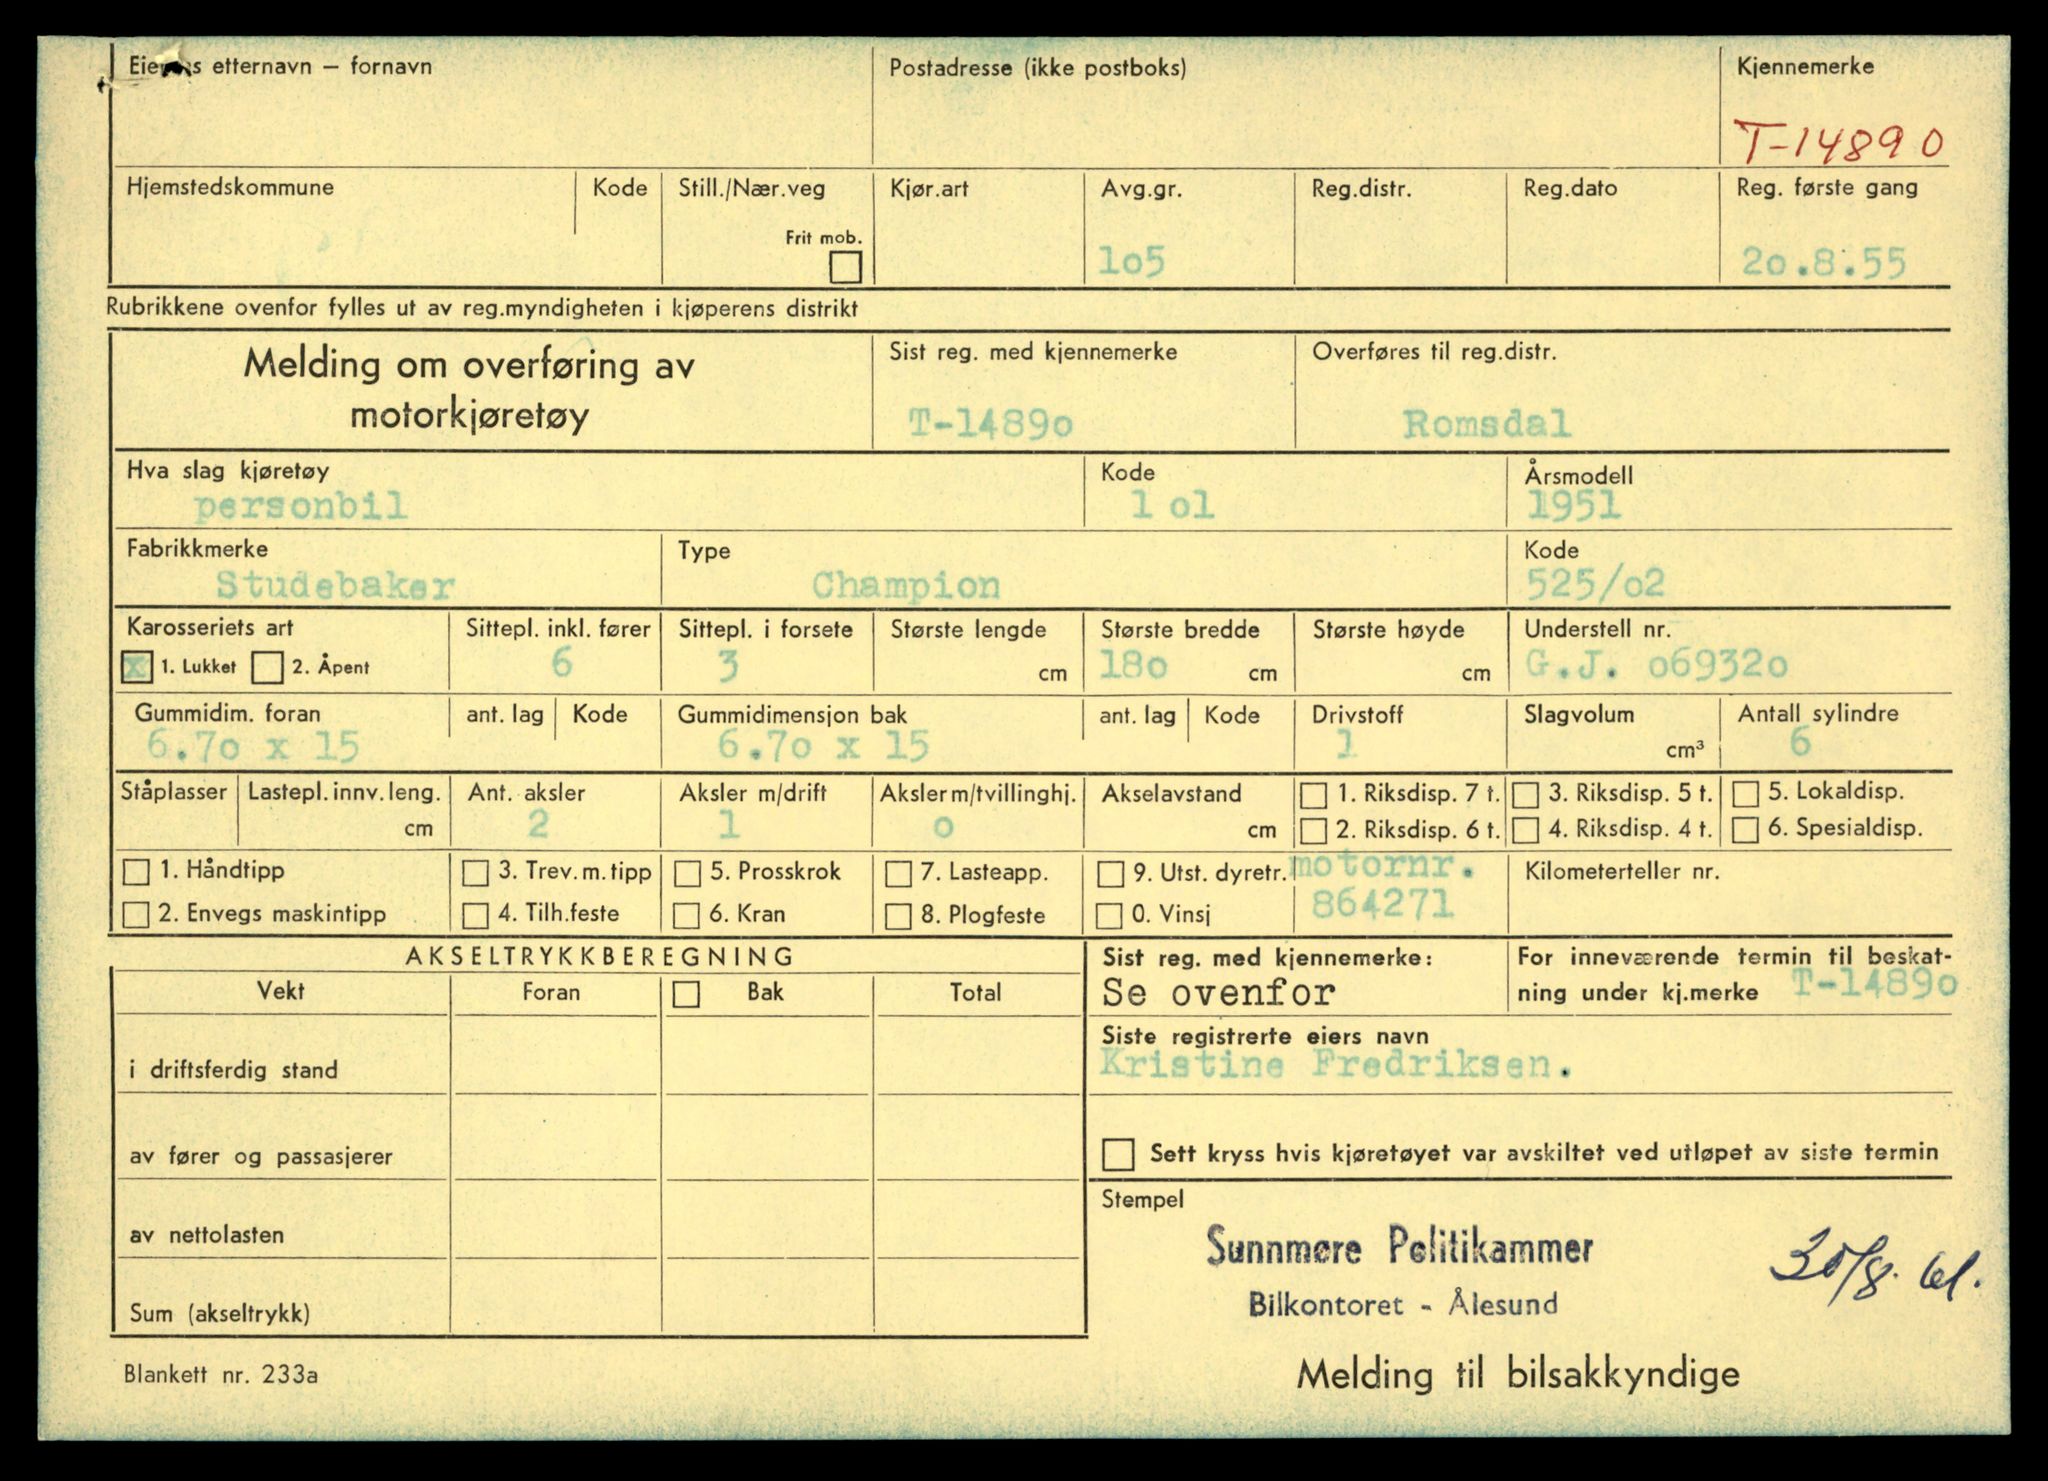 Eierens etternavn – fornavn
Postadresse (ikke postboks)
Kjennemerke
T-14890
Hjemstedskommune
Kode
Still./Nær.veg
Frit mob.
Kjør.art
Avg.gr.
1o5
Reg.distr.
Reg.dato
Reg. første gang
2o.8.55
Rubrikkene ovenfor fylles ut av reg.myndigheten i kjøperens distrikt
Melding om overføring av
motorkjøretøy
Sist reg. med kjennemerke
T-1489o
Overføres til reg.distr.
Romsdal
Hva slag kjøretøy
personbil
Kode
1 o1
Årsmodell
1951
Fabrikkmerke
Studebaker
Type
Champion
Kode
525/o2
Karosseriets art
x 1. Lukket 2. Åpent
Sittepl. inkl. fører
6
Sittepl. i forsete
3
Største lengde
cm
Største bredde
18o cm
Største høyde
cm
Understell nr.
G.J. o6932o
Gummidim. foran
6.7o x 15
ant. lag
Kode
Gummidimensjon bak
6.7o x 15
ant. lag
Kode
Drivstoff
1
Slagvolum
cm³
Antall sylindre
6
Ståplasser
Lastepl. innv. leng.
cm
Ant. aksler
2
Aksler m/drift
1
Aksler m/tvillinghj.
o
Akselavstand
cm
1. Riksdisp. 7 t.
2. Riksdisp. 6 t.
3. Riksdisp. 5 t.
4. Riksdisp. 4 t.
5. Lokaldisp.
6. Spesialdisp.
1. Håndtipp
2. Envegs maskintipp
3. Trev. m. tipp
4. Tilh.feste
5. Prosskrok
6. Kran
7. Lasteapp.
8. Plogfeste
9. Utst. dyretr.
0. Vinsj
motornr.
864271
Kilometerteller nr.
AKSELTRYKKBEREGNING
Vekt
Foran
Bak
Total
i driftsferdig stand
av fører og passasjerer
av nettolasten
Sum (akseltrykk)
Sist reg. med kjennemerke:
Se ovenfor
For inneværende termin til beskat-
ning under kj.merke T-1489o
Siste registrerte eiers navn
Kristine Fredriksen.
Sett kryss hvis kjøretøyet var avskiltet ved utløpet av siste termin
Stempel
Sunnmøre Politikammer
Bilkontoret - Ålesund
30/8. 61.
Blankett nr. 233a
Melding til bilsakkyndige